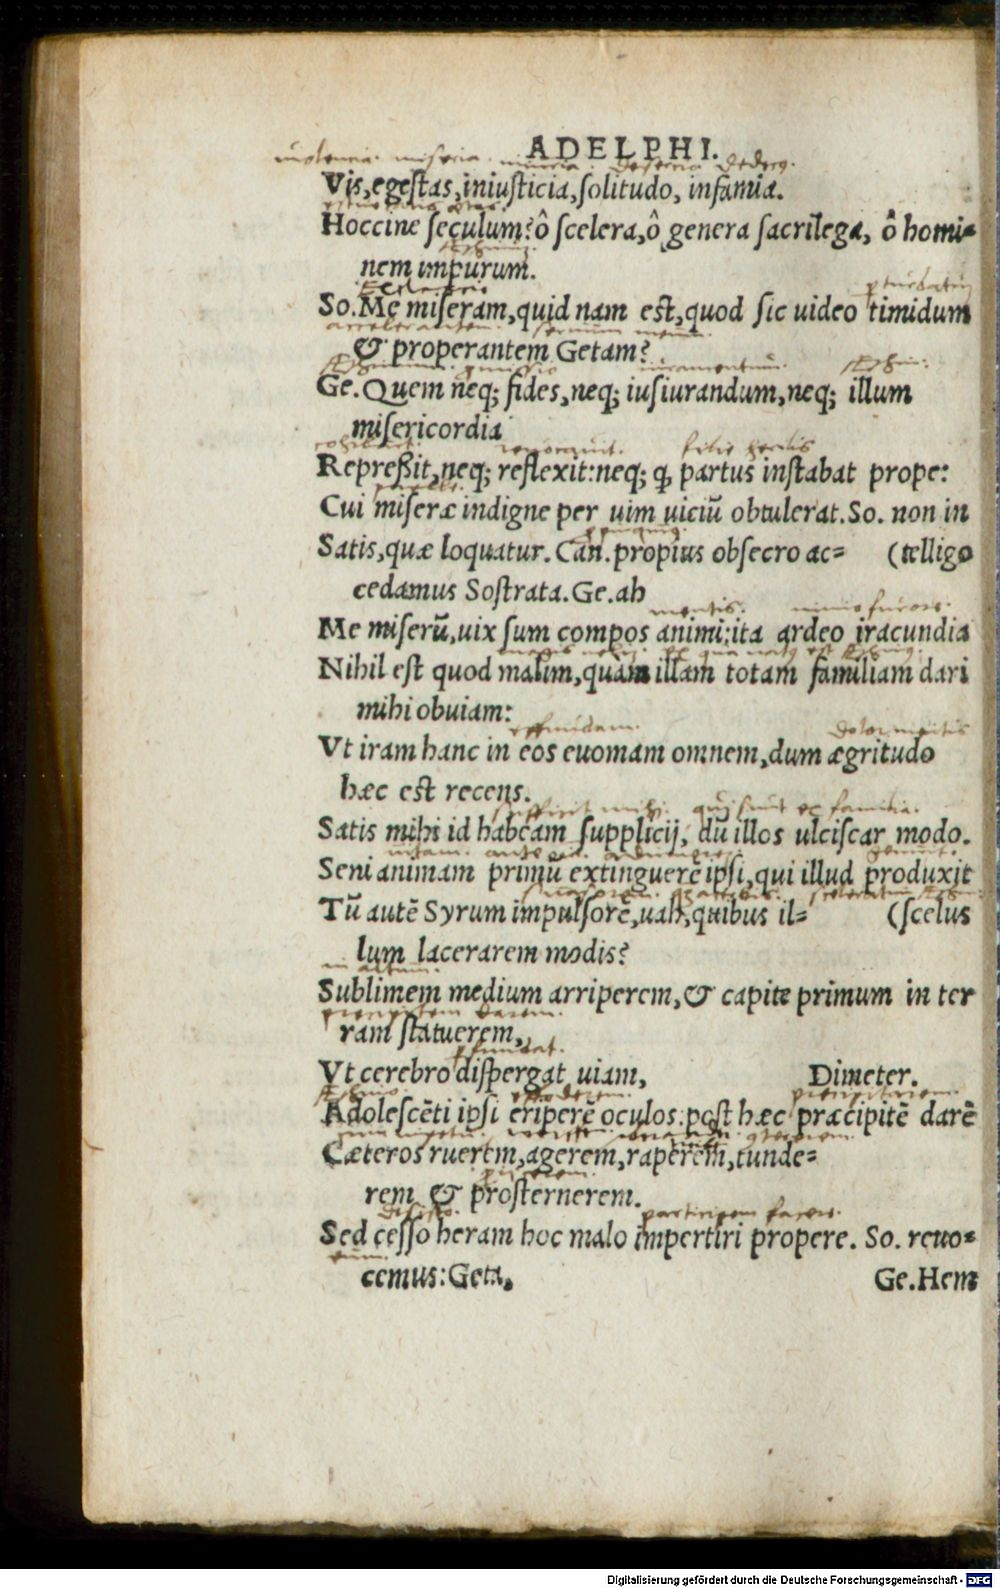 ADELPHI.
uiolencia. miseria. iniuria deserti dedecꝰ.
Vis, egestas, iniusticia, solitudo, infamia.
Hoccine seculum? ô scelera, ô genera sacrilega, ô homi=
nem impurum.
So. Me miseram, quid nam est, quod sic uideo timidum
& properantem Getam?
Ge. Quem neq; fides, neq; iusiurandum, neq; illum
misericordia
reuocauit. filie herilis
Repreßit, neq; reflexit: neq; ꝙ partus instabat prope:
Cui miseræ indigne per uim uiciū obtulerat. So. non in
Satis, quæ loquatur. Can. propius obsecro ac= (telligo
cedamus Sostrata. Ge. ah
mentis. nimio furore.
Me miserū, uix sum compos animi: ita ardeo iracundia
Nihil est quod malim, quàm illam totam familiam dari
mihi obuiam:
effundam. dolor mentis
Vt iram hanc in eos euomam omnem, dum ægritudo
hæc est recens.
sufficit mihi. qui sunt ex familia.
Satis mihi id habeam supplicij, dū illos ulciscar modo.
uitam.
Seni animam primū extinguerē ipsi, qui illud produxit
Tū autē Syrum impulsorē, uah, quibus il= (scelus
lum lacerarem modis?
in altum.
Sublimem medium arriperem, & capite primum in ter
ram statuerem,
Vt cerebro dispergat uiam, Dimeter.
Adolescēti ipsi eriperē oculos: post hæc præcipitē darē
Cæteros ruerem, agerem, raperem, tunde=
rem & prosternerem.
desisto. participem facere.
Sed cesso heram hoc malo impertiri propere. So. reuo=
eum.
cemus: Geta. Ge. Hem
Digitalisierung gefördert durch die Deutsche Forschungsgemeinschaft - DFG